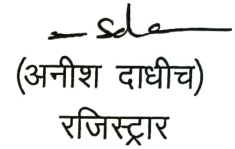 sd
(अनीश दाधीच)
रजिस्ट्रार